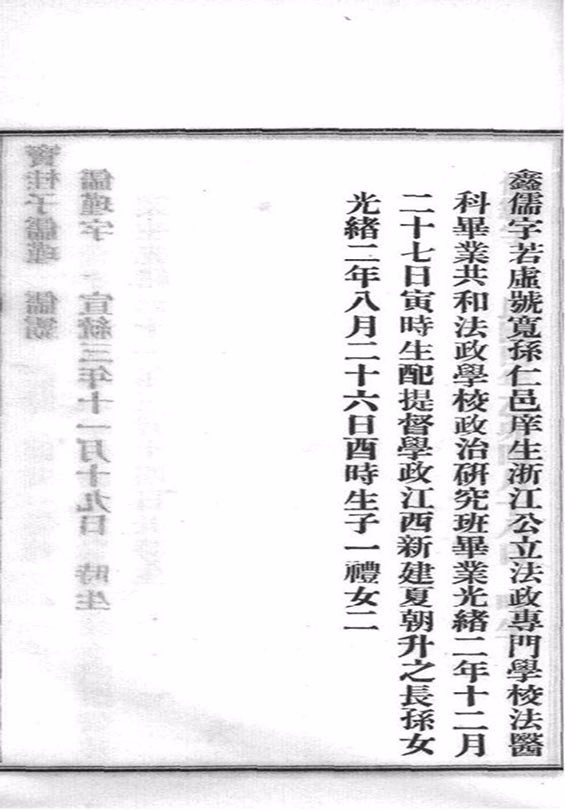 鑫儒字若虛號寬孫仁邑庠生浙江公立法政專門學校法醫
科畢業共和法政學校政治研究班畢業光緒二年十二月
二十七日寅時生配提督學政江西新建夏朝升之長孫女
光緒二年八月二十六日酉時生子一禮女二
儒瑾字 宣統三年十一月十九日 時生
寶桂子儒瑾 儒